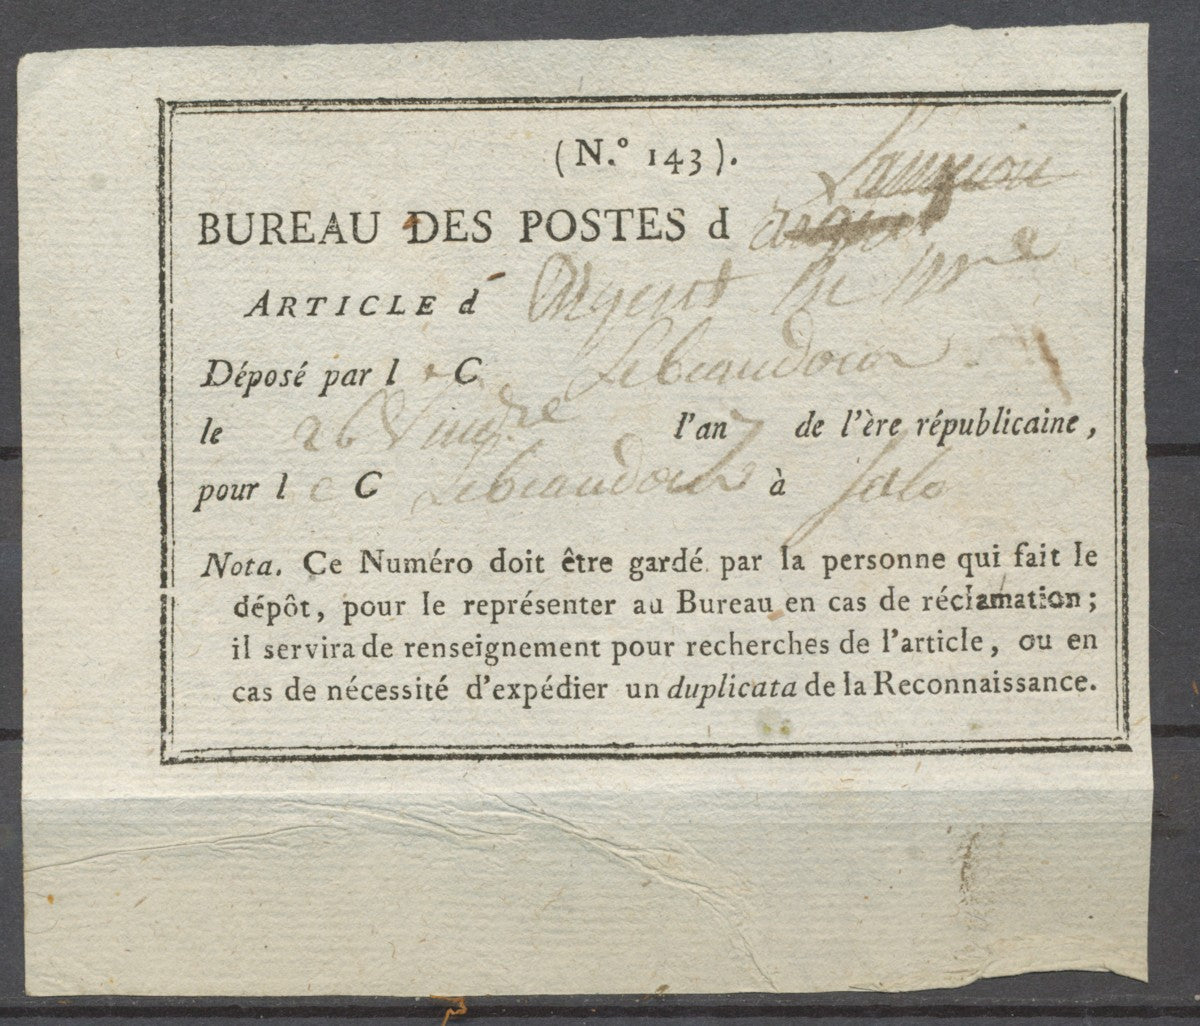 (N.º 143).
Lannion
BUREAU DES POSTES d
ARTICLE d'Argent
Déposé par l e C Lebeaudour
le 26 Vend.re l'an 7 de l'ère républicaine,
pour l e C Lebeaudour à
Nota. Ce Numéro doit être gardé par la personne qui fait le
dépôt, pour le représenter au Bureau en cas de réclamation;
il servira de renseignement pour recherches de l'article, ou en
cas de nécessité d'expédier un duplicata de la Reconnaissance.